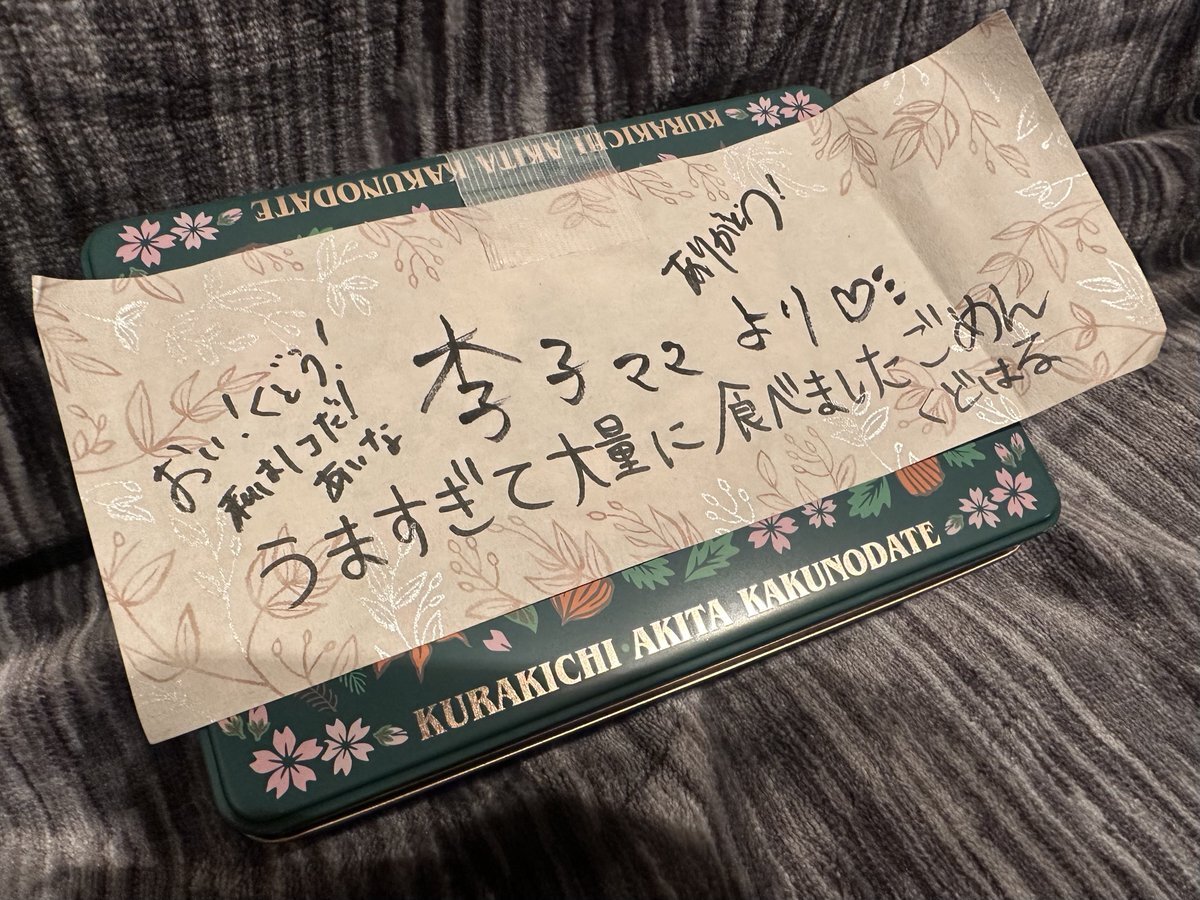 KURAKICHI AKITA KAKUNODATE
ありがとう!
李子ママ より♡
おい!くどう!
私はリコだ!
あいな
うますぎて大量に食べました ごめん
くどはる
KURAKICHI・AKITA KAKUNODATE